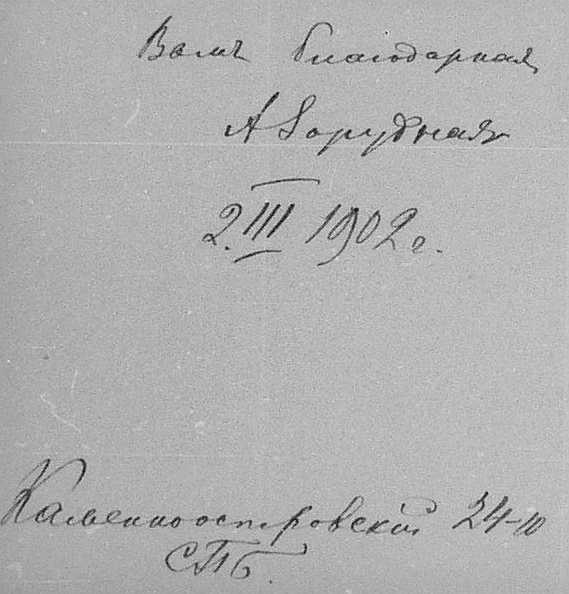 Вамъ благодарная
А Зарудная
2.III 1902 г.
Каменноостровскій 24-10
СПБ.